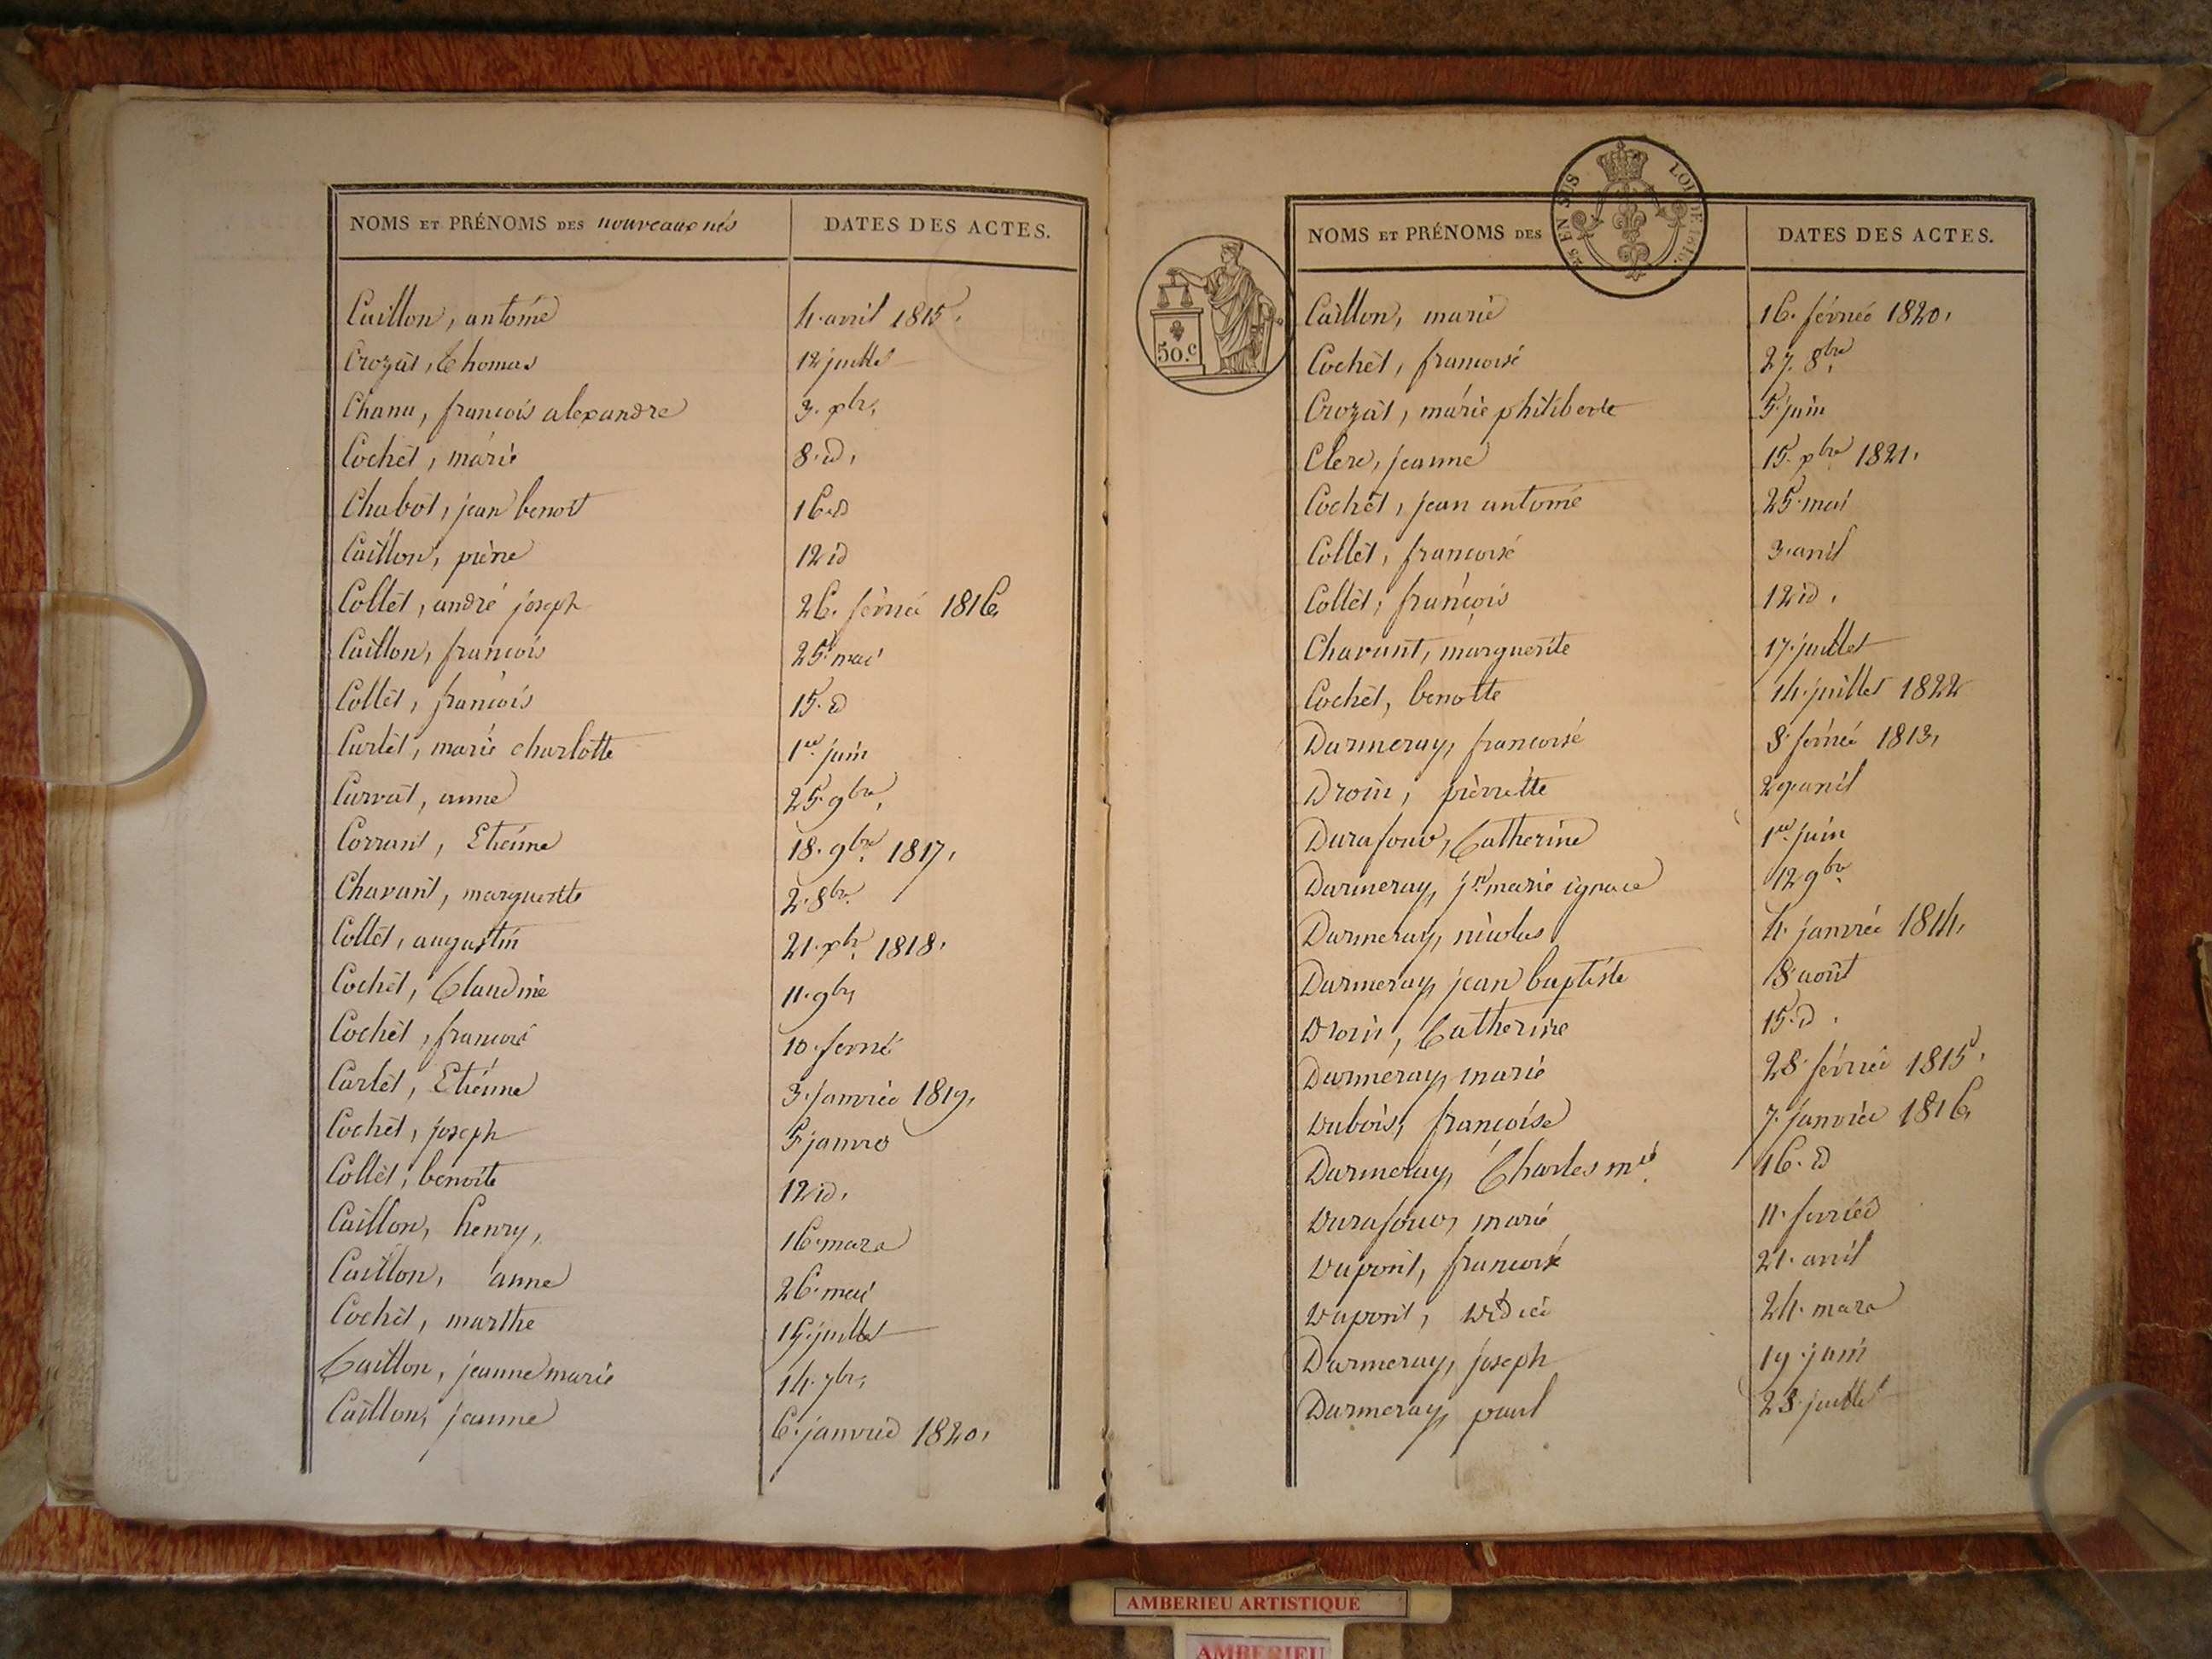 NOMS ET PRÉNOMS DES nouveaux nés DATES DES ACTES.
Caillon, antoine 4. avril 1815.
Crozat, Thomas 12 juillet
Chana, francois alexandre 3. xbr.
Cochet, marie 8. id.
Chabot, jean benoit 16. id
Caillon, pierre 12 id
Collet, andré joseph 26. février 1816.
Caillon, francois 25. mai
Collet, francois 15. id
Curlet, marie charlotte 1er juin
Curvat, anne 25. 9bre.
Corrant, Etienne 18. 9bre. 1817.
Chavant, marguerite 2. 8bre.
Collet, augustin 21. xbr. 1818.
Cochet, Claudine 11. 9bre
Cochet, francois 10. fevrié
Curlet, Etienne 3. janvier 1819.
Cochet, joseph 5 janvier
Collet, benoite 12 id.
Caillon, henry, 16. mars
Caillon, anne 26. mai
Cochet, marthe 15. juillet
Caillon, jeanne marie 14. 7bre.
Caillon, jeanne 6. janvier 1820.
25 EN SUS LOI DE 1816.
50.c
NOMS ET PRÉNOMS DES DATES DES ACTES.
Caillon, marie 16. février 1820.
Cochet, francoise 27. 8bre.
Crozat, marie philiberte 5. juin
Clerc, jeanne 15. xbre 1821.
Cochet, jean antoine 25. mai
Collet, francoise 3. avril
Collet, françois 12 id.
Chavant, marguerite 17. juillet
Cochet, benoite 14. juillet 1822
Darmeray, francoise 8. février 1813.
Droin, pierrette 29. avril
Durafour, Catherine 1er juin
Darmeray, jn. marie ignace 12 9bre.
Darmeray, nicolas 4. janvier 1814.
Darmeray, jean baptiste 18. août
Droin, Catherine 15. id.
Darmeray, marie 28. février 1815.
Dubois, francoise 7. janvier 1816.
Darmeray, Charles mie. 16. id
Durafour, marie 11. fevrier
Dupont, francoise 21. avril
Dupont, 24. mars
Darmeray, joseph 19. juin
Darmeray, paul 23. juillet
AMBERIEU ARTISTIQUE
AMBERIEU